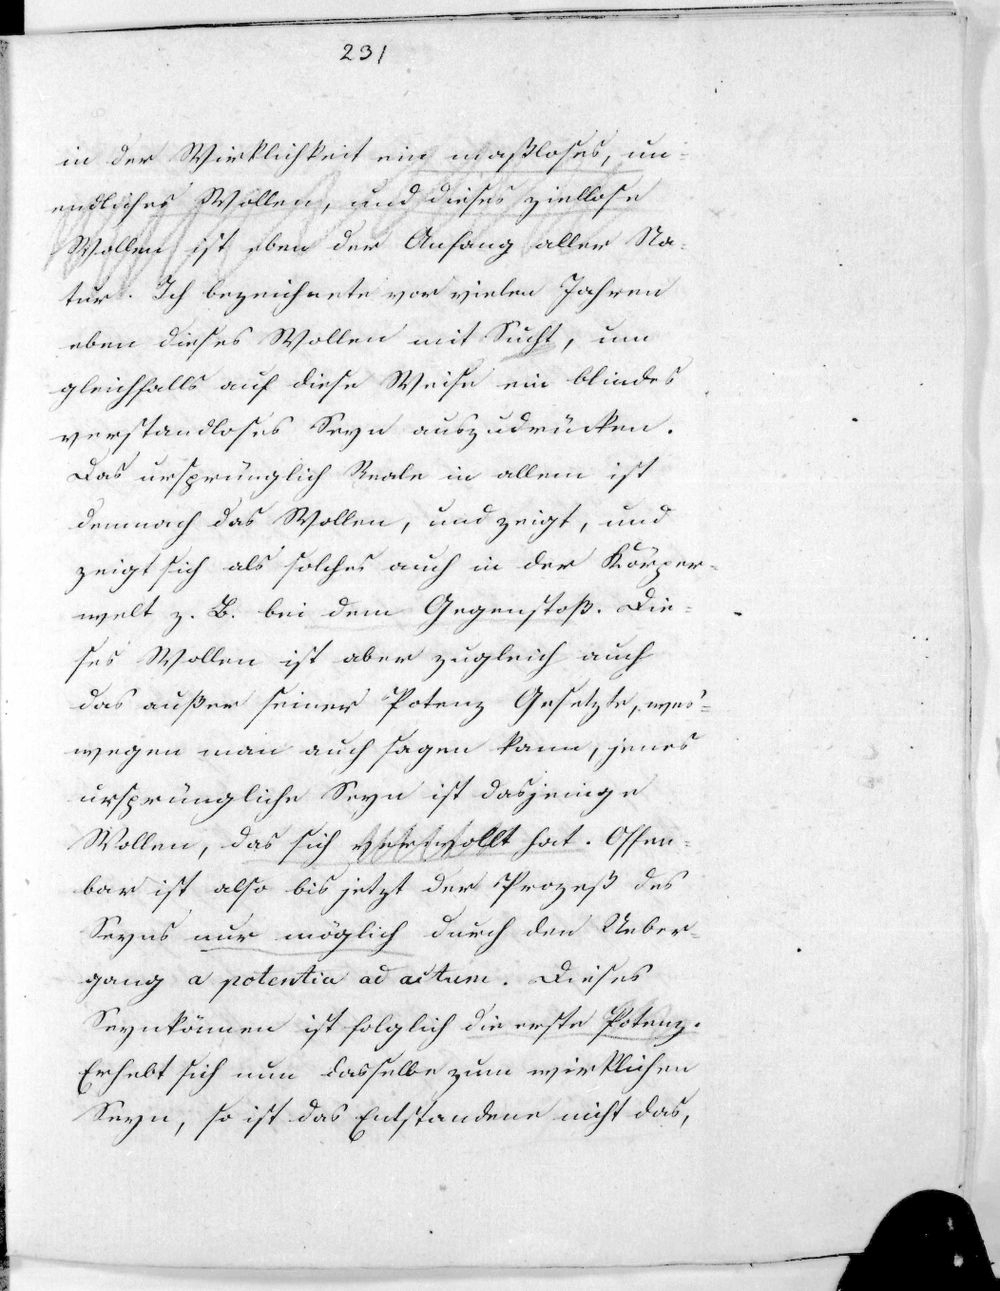 231
in der Wirklichkeit ein maßloses, un=
endliches Wollen, und dieses ziellose
Wollen ist eben der Anfang aller Na=
tur. Ich bezeichnete vor vielen Jahren
eben dieses Wollen mit Sucht, um
gleichfalls auf diese Weise ein blindes
verstandloses Seyn auszudrücken.
Das ursprünglich Reale in allem ist
demnach das Wollen, und zeigt, und
zeigt sich als solches auch in der Körper=
welt z. B. bei dem Gegenstoß. Die=
ses Wollen ist aber zugleich auch
das außer seiner Potenz Gesetzte, wes=
wegen man auch sagen kann, jenes
ursprüngliche Seyn ist dasjenige
Wollen, das sich verwollt hat. Offen=
bar ist also bis jetzt der Prozeß des
Seyns nur möglich durch den Ueber=
gang a potentia ad actum. Dieses
Seynkönnen ist folglich die erste Potenz.
Erhebt sich nun dasselbe zum wirklichen
Seyn, so ist das Entstandene nicht das,